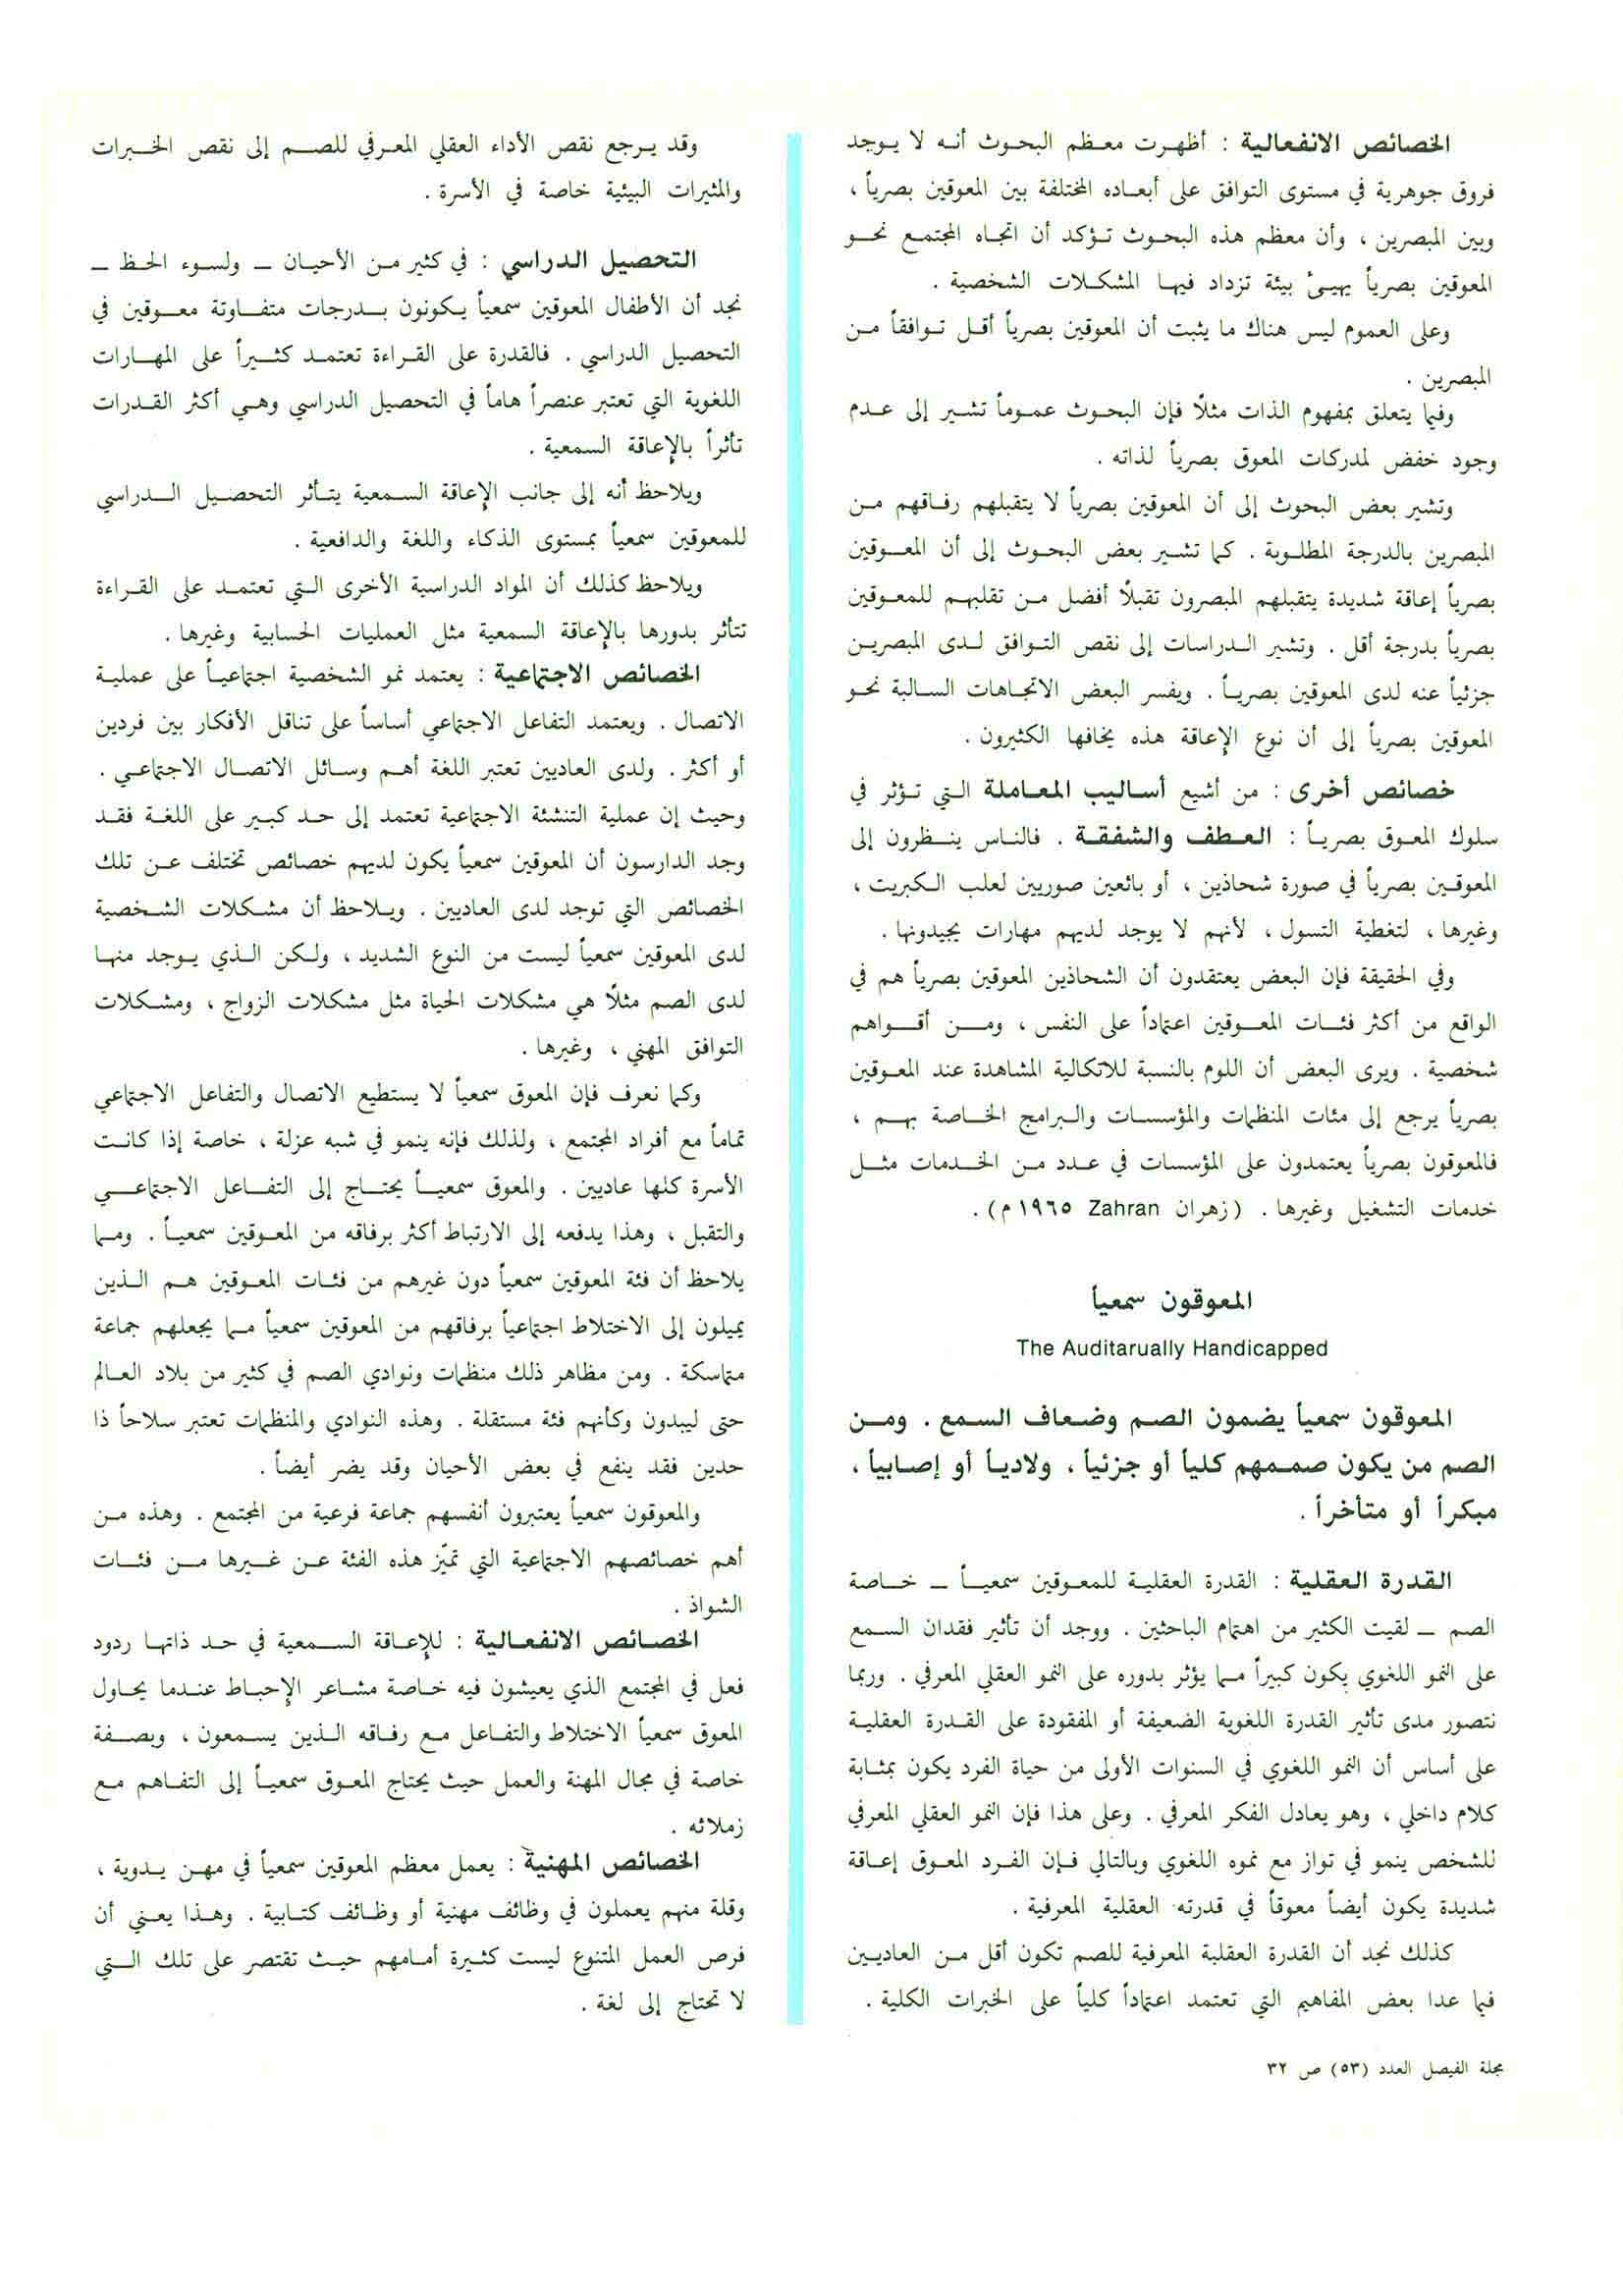 الخصائص الانفعالية : أظهرت معظم البحوث أنه لا يوجد
فروق جوهرية في مستوى التوافق على أبعاده المختلفة بين المعوقين بصرياً ،
وبين المبصرين ، وأن معظم هذه البحوث تؤكد أن اتجاه المجتمع نحو
المعوقين بصرياً يهيئ بيئة تزداد فيها المشكلات الشخصية .
وعلى العموم ليس هناك ما يثبت أن المعوقين بصرياً أقل توافقاً من
المبصرين .
وفيما يتعلق بمفهوم الذات مثلاً فإن البحوث عموماً تشير إلى عدم
وجود خفض لمدركات المعوق بصرياً لذاته .
وتشير بعض البحوث إلى أن المعوقين بصرياً لا يتقبلهم رفاقهم من
المبصرين بالدرجة المطلوبة . كما تشير بعض البحوث إلى أن المعوقين
بصرياً إعاقة شديدة يتقبلهم المبصرون تقبلاً أفضل من تقلبهم للمعوقين
بصرياً بدرجة أقل . وتشير الدراسات إلى نقص التوافق لدى المبصرين
جزئياً عنه لدى المعوقين بصرياً . ويفسر البعض الاتجاهات السالبة نحو
المعوقين بصرياً إلى أن نوع الإعاقة هذه يخافها الكثيرون .
خصائص أخرى : من أشيع أساليب المعاملة التي تؤثر في
سلوك المعوق بصرياً : العطف والشفقة . فالناس ينظرون إلى
المعوقين بصرياً في صورة شحاذين ، أو بائعين صوريين لعلب الكبريت ،
وغيرها ، لتغطية التسول ، لأنهم لا يوجد لديهم مهارات يجيدونها .
وفي الحقيقة فإن البعض يعتقدون أن الشحاذين المعوقين بصرياً هم في
الواقع من أكثر فئات المعوقين اعتماداً على النفس ، ومن أقواهم
شخصية . ويرى البعض أن اللوم بالنسبة للاتكالية المشاهدة عند المعوقين
بصرياً يرجع إلى مئات المنظمات والمؤسسات والبرامج الخاصة بهم ،
فالمعوقون بصرياً يعتمدون على المؤسسات في عدد من الخدمات مثل
خدمات التشغيل وغيرها . (زهران Zahran ١٩٦٥ م) .
المعوقون سمعياً
The Auditarually Handicapped
المعوقون سمعياً يضمون الصم وضعاف السمع . ومن
الصم من يكون صممهم كلياً أو جزئياً ، ولادياً أو إصابياً ،
مبكراً أو متأخراً .
القدرة العقلية : القدرة العقلية للمعوقين سمعياً – خاصة
الصم – لقيت الكثير من اهتمام الباحثين . ووجد أن تأثير فقدان السمع
على النمو اللغوي يكون كبيراً مما يؤثر بدوره على النمو العقلي المعرفي . وربما
نتصور مدى تأثير القدرة اللغوية الضعيفة أو المفقودة على القدرة العقلية
على أساس أن النمو اللغوي في السنوات الأولى من حياة الفرد يكون بمثابة
كلام داخلي ، وهو يعادل الفكر المعرفي . وعلى هذا فإن النمو العقلي المعرفي
للشخص ينمو في تواز مع نموه اللغوي وبالتالي فإن الفرد المعوق إعاقة
شديدة يكون أيضاً معوقاً في قدرته العقلية المعرفية .
كذلك نجد أن القدرة العقلية المعرفية للصم تكون أقل من العاديين
فيما عدا بعض المفاهيم التي تعتمد اعتماداً كلياً على الخبرات الكلية .
وقد يرجع نقص الأداء العقلي المعرفي للصم إلى نقص الخبرات
والمثيرات البيئية خاصة في الأسرة .
التحصيل الدراسي : في كثير من الأحيان – ولسوء الحظ –
نجد أن الأطفال المعوقين سمعياً يكونون بدرجات متفاوتة معوقين في
التحصيل الدراسي . فالقدرة على القراءة تعتمد كثيراً على المهارات
اللغوية التي تعتبر عنصراً هاماً في التحصيل الدراسي وهي أكثر القدرات
تأثراً بالإعاقة السمعية .
ويلاحظ أنه إلى جانب الإعاقة السمعية يتأثر التحصيل الدراسي
للمعوقين سمعياً بمستوى الذكاء واللغة والدافعية .
ويلاحظ كذلك أن المواد الدراسية الأخرى التي تعتمد على القراءة
تتأثر بدورها بالإعاقة السمعية مثل العمليات الحسابية وغيرها .
الخصائص الاجتماعية : يعتمد نمو الشخصية اجتماعياً على عملية
الاتصال . ويعتمد التفاعل الاجتماعي أساساً على تناقل الأفكار بين فردين
أو أكثر . ولدى العاديين تعتبر اللغة أهم وسائل الاتصال الاجتماعي .
وحيث إن عملية التنشئة الاجتماعية تعتمد إلى حد كبير على اللغة فقد
وجد الدارسون أن المعوقين سمعياً يكون لديهم خصائص تختلف عن تلك
الخصائص التي توجد لدى العاديين . ويلاحظ أن مشكلات الشخصية
لدى المعوقين سمعياً ليست من النوع الشديد ، ولكن الذي يوجد منها
لدى الصم مثلاً هي مشكلات الحياة مثل مشكلات الزواج ، ومشكلات
التوافق المهني ، وغيرها .
وكما نعرف فإن المعوق سمعياً لا يستطيع الاتصال والتفاعل الاجتماعي
تماماً مع أفراد المجتمع ، ولذلك فإنه ينمو في شبه عزلة ، خاصة إذا كانت
الأسرة كلها عاديين . والمعوق سمعياً يحتاج إلى التفاعل الاجتماعي
والتقبل ، وهذا يدفعه إلى الارتباط أكثر برفاقه من المعوقين سمعياً . ومما
يلاحظ أن فئة المعوقين سمعياً دون غيرهم من فئات المعوقين هم الذين
يميلون إلى الاختلاط اجتماعياً برفاقهم من المعوقين سمعياً مما يجعلهم جماعة
متماسكة . ومن مظاهر ذلك منظمات ونوادي الصم في كثير من بلاد العالم
حتى ليبدون وكأنهم فئة مستقلة . وهذه النوادي والمنظمات تعتبر سلاحاً ذا
حدين فقد ينفع في بعض الأحيان وقد يضر أيضاً .
والمعوقون سمعياً يعتبرون أنفسهم جماعة فرعية من المجتمع . وهذه من
أهم خصائصهم الاجتماعية التي تميّز هذه الفئة عن غيرها من فئات
الشواذ .
الخصائص الانفعالية : للإعاقة السمعية في حد ذاتها ردود
فعل في المجتمع الذي يعيشون فيه خاصة مشاعر الإحباط عندما يحاول
المعوق سمعياً الاختلاط والتفاعل مع رفاقه الذين يسمعون ، وبصفة
خاصة في مجال المهنة والعمل حيث يحتاج المعوق سمعياً إلى التفاهم مع
زملائه .
الخصائص المهنية : يعمل معظم المعوقين سمعياً في مهن يدوية ،
وقلة منهم يعملون في وظائف مهنية أو وظائف كتابية . وهذا يعني أن
فرص العمل المتنوع ليست كثيرة أمامهم حيث تقتصر على تلك التي
لا تحتاج إلى لغة .
مجلة الفيصل العدد (٥٣) ص ٣٢